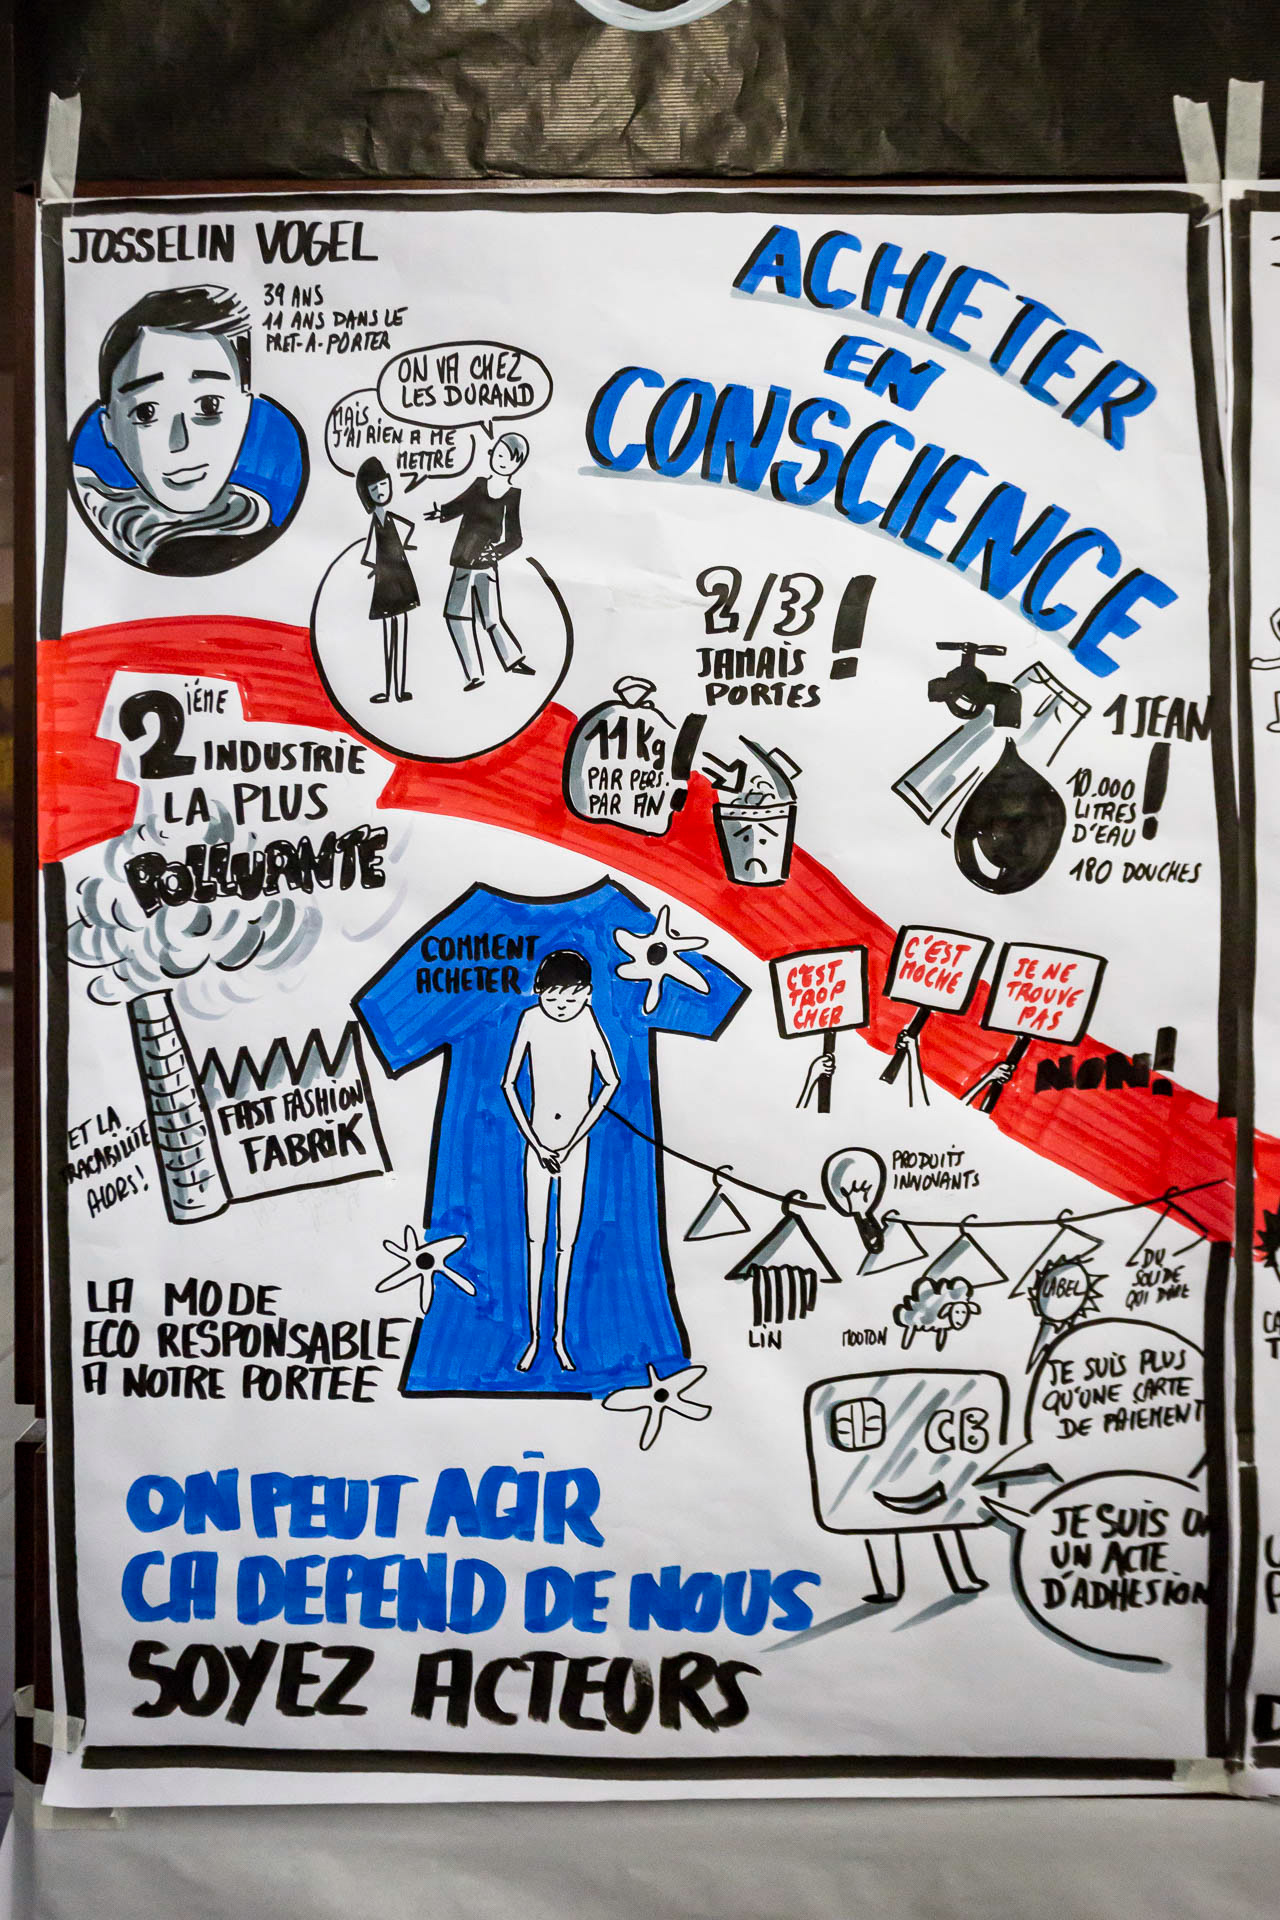 JOSSELIN VOGEL
39 ANS
11 ANS DANS LE
PRET-A-PORTER
ON VA CHEZ
LES DURAND
MAIS
J'AI RIEN A ME
METTRE
ACHETER
EN
CONSCIENCE
2/3!
JAMAIS
PORTES
11Kg!
PAR PERS.
PAR AN
1 JEAN!
10.000
LITRES
D'EAU
180 DOUCHES
2ième
INDUSTRIE
LA PLUS
POLLUANTE
COMMENT
ACHETER
C'EST
TROP
CHER
C'EST
MOCHE
JE NE
TROUVE
PAS
NON!
ET LA
TRACABILITE
ALORS!
FAST FASHION
FABRIK
PRODUITS
INNOVANTS
LIN
MOUTON
LABEL
DU
SOLIDE
QUI DURE
LA MODE
ECO RESPONSABLE
A NOTRE PORTEE
CB
JE SUIS PLUS
QU'UNE CARTE
DE PAIEMENT
JE SUIS
UN ACTE
D'ADHESION
ON PEUT AGIR
CA DEPEND DE NOUS
SOYEZ ACTEURS